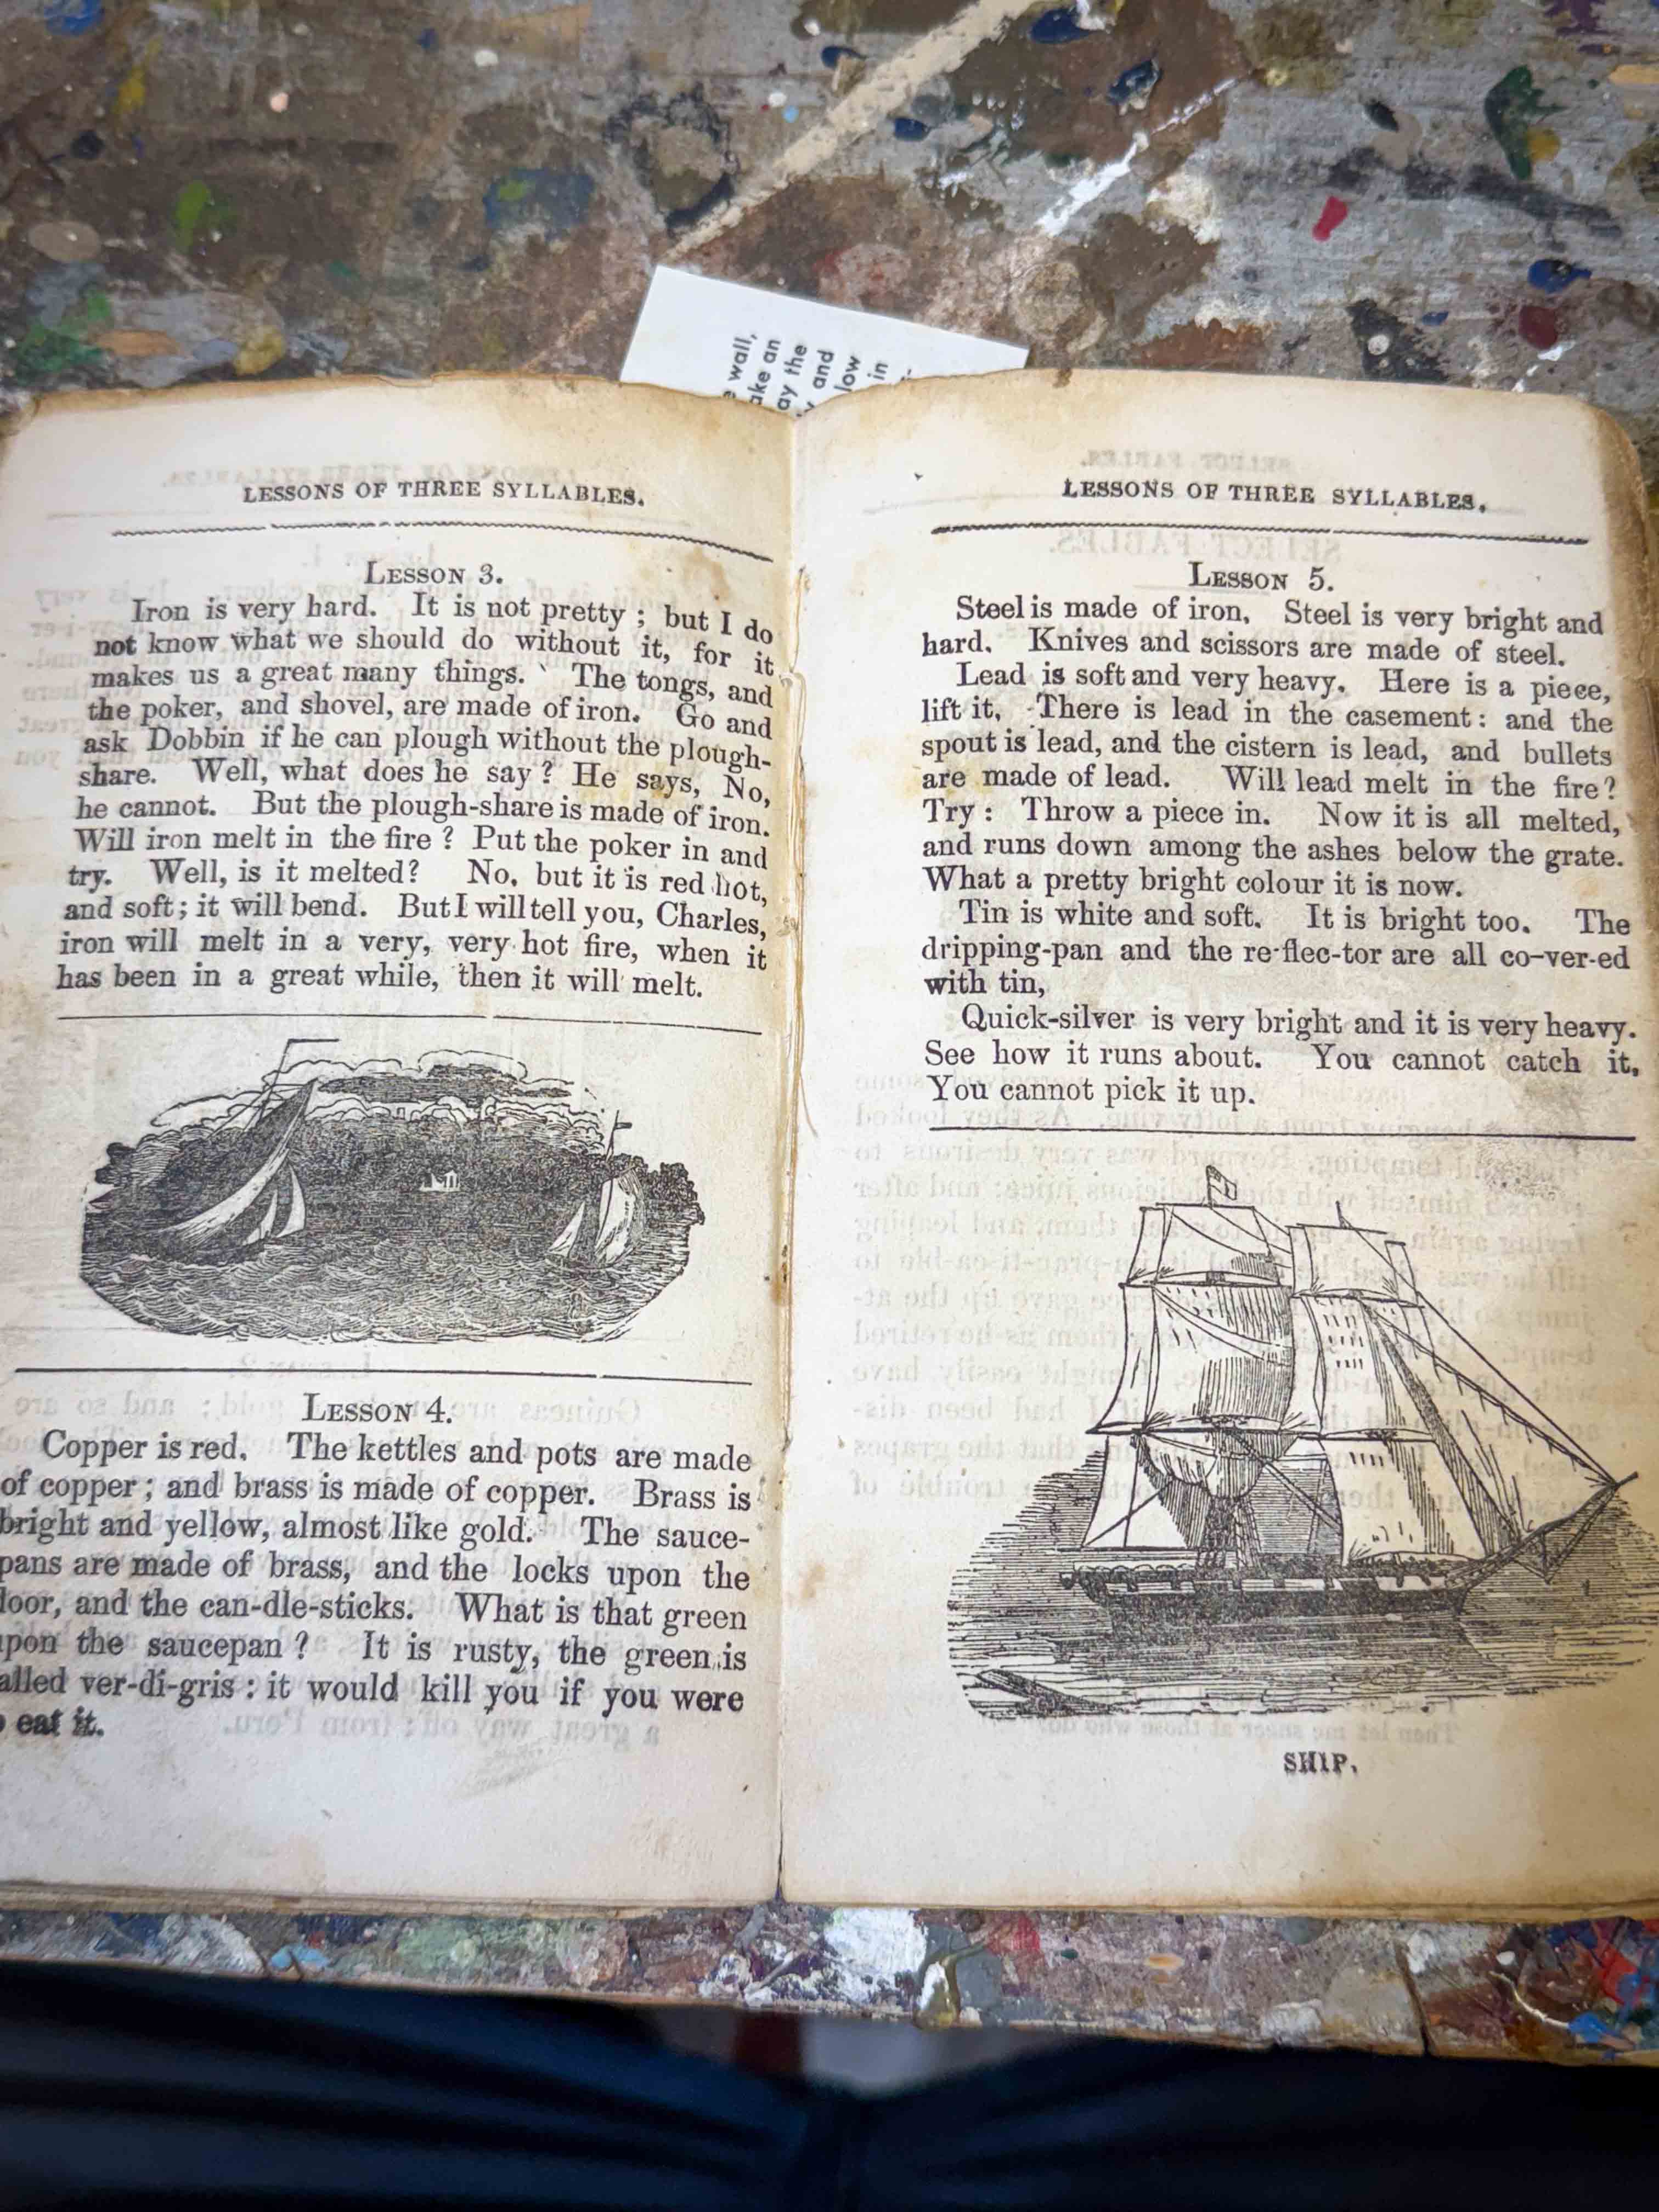 wall,
an
the
and
low
in
LESSONS OF THREE SYLLABLES.
LESSON 3.
Iron is very hard. It is not pretty ; but I do
not know what we should do without it, for it
makes us a great many things. The tongs, and
the poker, and shovel, are made of iron. Go and
ask Dobbin if he can plough without the plough-
share. Well, what does he say ? He says, No,
he cannot. But the plough-share is made of iron.
Will iron melt in the fire ? Put the poker in and
try. Well, is it melted? No, but it is red hot,
and soft; it will bend. But I will tell you, Charles,
iron will melt in a very, very hot fire, when it
has been in a great while, then it will melt.
LESSON 4.
Copper is red. The kettles and pots are made
of copper ; and brass is made of copper. Brass is
bright and yellow, almost like gold. The sauce-
pans are made of brass, and the locks upon the
loor, and the can-dle-sticks. What is that green
pon the saucepan ? It is rusty, the green is
alled ver-di-gris : it would kill you if you were
eat it.
LESSONS OF THREE SYLLABLES,
LESSON 5.
Steel is made of iron, Steel is very bright and
hard. Knives and scissors are made of steel.
Lead is soft and very heavy. Here is a piece,
lift it, There is lead in the casement : and the
spout is lead, and the cistern is lead, and bullets
are made of lead. Will lead melt in the fire?
Try : Throw a piece in. Now it is all melted,
and runs down among the ashes below the grate.
What a pretty bright colour it is now.
Tin is white and soft. It is bright too. The
dripping-pan and the re-flec-tor are all co-ver-ed
with tin,
Quick-silver is very bright and it is very heavy.
See how it runs about. You cannot catch it,
You cannot pick it up.
SHIP.